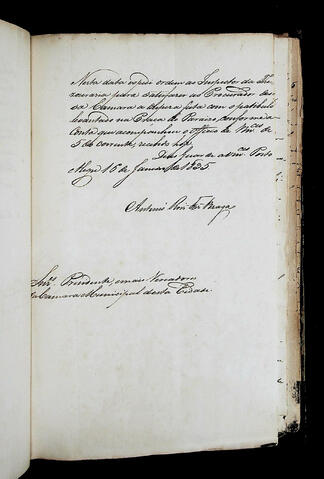 Nesta data expedi ordem ao Inspector da The-
zouraria para satisfazer ao Procurador des-
sa Camara a despeza feita com o patibulo
levantado na Praça do Paraizo, conforme a
Conta que acompanhou o Officio de Vm.ces de
5 do corrente, recebido hoje.
Deos Guarde a Vm.ces Porto
Alegre 16 de Janeiro de 1835
Antonio Roiz Fz Braga
Snr.es Presidente, e mais Vereadores
da Camara Municipal desta Cidade.